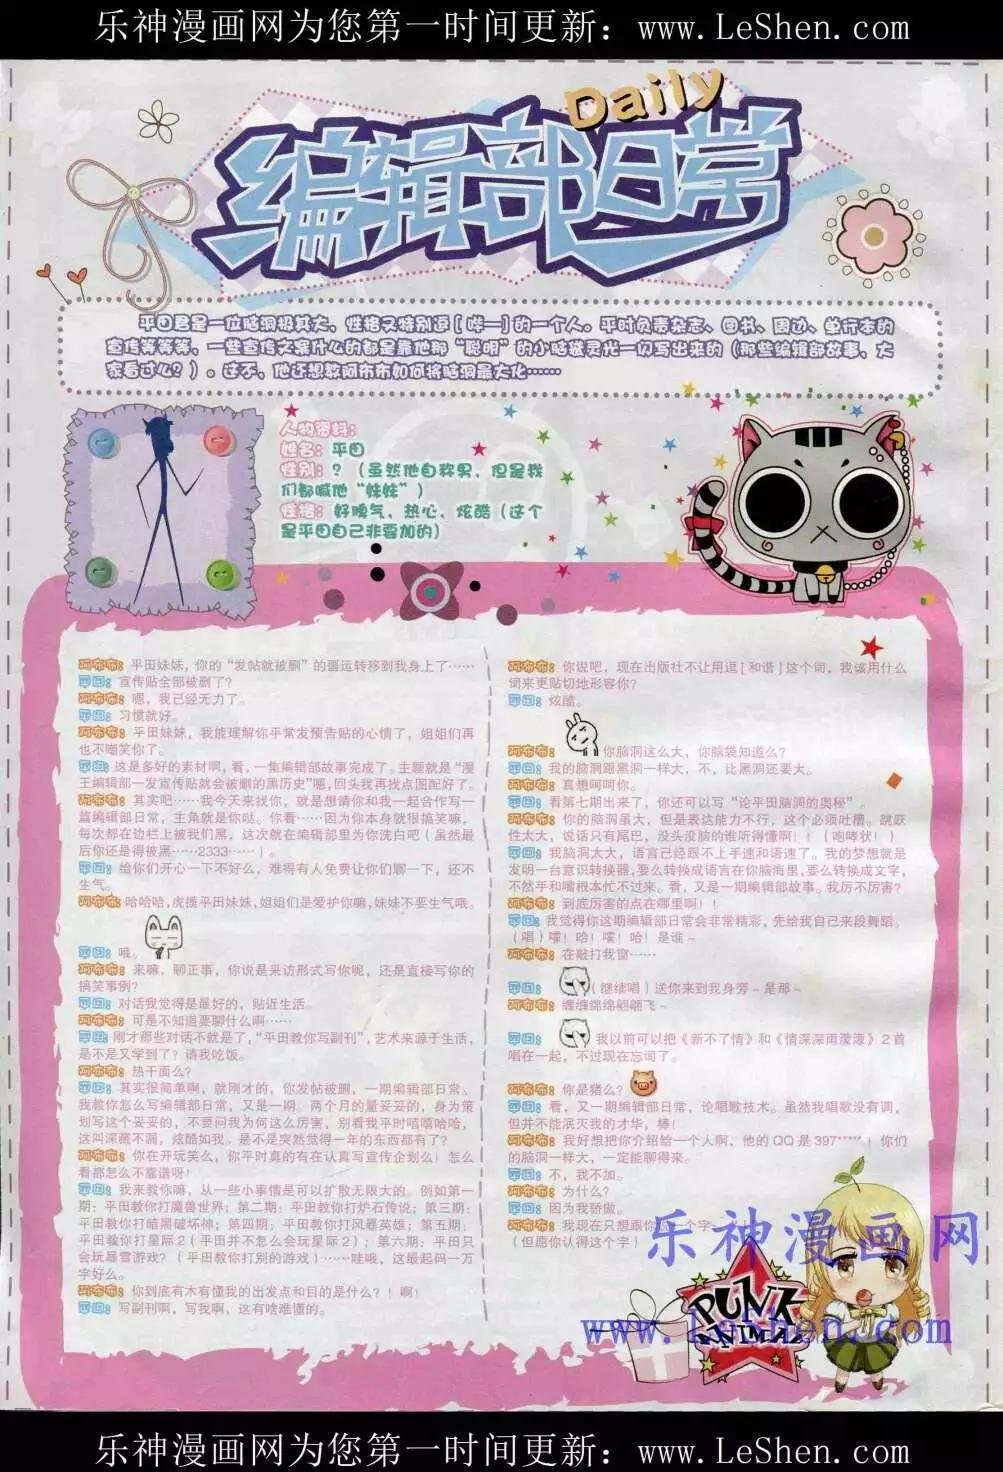 乐神漫画网为您第一时间更新：www.LeShen.com
Daily
编辑部日常
平田君是一位脑洞极其大，性格又特别逗[哔—]的一个人。平时负责杂志、图书、周边、单行本的
宣传等等等，一些宣传文案什么的都是靠他那“聪明”的小脑袋灵光一闪写出来的（那些编辑部故事，大
家看过么？）。这不，他还想教阿布布如何将脑洞最大化……
人物资料：
姓名：平田
性别：？（虽然他自称男，但是我
们都喊他“妹妹”）
性格：好脾气、热心、炫酷（这个
是平田自己非要加的）
阿布布：平田妹妹，你的“发帖就被删”的噩运转移到我身上了……
平田：宣传贴全部被删了？
阿布布：嗯，我已经无力了。
平田：习惯就好。
阿布布：平田妹妹，我能理解你平常发预告贴的心情了，姐姐们再
也不嘲笑你了。
平田：这是多好的素材啊，看，一集编辑部故事完成了。主题就是“漫
王编辑部一发宣传贴就会被删的黑历史”嗯，回头我再找点图配好了。
阿布布：其实吧……我今天来找你，就是想请你和我一起合作写一
篇编辑部日常，主角就是你哒。你看……因为你本身就很搞笑嘛，
每次都在边栏上被我们黑，这次就在编辑部里为你洗白吧（虽然最
后你还是得被黑……2333……）。
平田：给你们开心一下不好么，难得有人免费让你们聊一下，还不
生气。
阿布布：哈哈哈，虎摸平田妹妹，姐姐们是爱护你嘛，妹妹不要生气哦。
平田：哦。
阿布布：来嘛，聊正事，你说是采访形式写你呢，还是直接写你的
搞笑事例？
平田：对话我觉得是最好的，贴近生活。
阿布布：可是不知道要聊什么啊……
平田：刚才那些对话不就是了，“平田教你写副刊”，艺术来源于生活，
是不是又学到了？请我吃饭。
阿布布：热干面么？
平田：其实很简单啊，就刚才的，你发帖被删，一期编辑部日常。
我教你怎么写编辑部日常，又是一期。两个月的量妥妥的，身为策
划写这个妥妥的，不要问我为何这么厉害，别看我平时嘻嘻哈哈，
这叫深藏不漏，炫酷如我。是不是突然觉得一年的东西都有了？
阿布布：你在开玩笑么，你平时真的有在认真写宣传企划么！怎么
看都怎么不靠谱呀！
平田：我来教你嘛，从一些小事情是可以扩散无限大的。例如第一
期：平田教你打魔兽世界；第二期：平田教你打炉石传说；第三期：
平田教你打暗黑破坏神；第四期：平田教你打风暴英雄；第五期：
平田教你打星际2（平田并不怎么会玩星际2）；第六期：平田只
会玩暴雪游戏？（平田教你打别的游戏）……哇哦，这最起码一万
字好么。
阿布布：你到底有木有懂我的出发点和目的是什么？！啊！
平田：写副刊啊，写我啊，这有啥难懂的。
阿布布：你说吧，现在出版社不让用逗[和谐]这个词，我该用什么
词来更贴切地形容你？
平田：炫酷。
阿布布：你脑洞这么大，你脑袋知道么？
平田：我的脑洞跟黑洞一样大，不，比黑洞还要大。
阿布布：真想呵呵你。
平田：看第七期出来了，你还可以写“论平田脑洞的奥秘”。
阿布布：你的脑洞虽大，但是表达能力不行，这个必须吐槽。跳跃
性太大，说话只有尾巴，没头没脑的谁听得懂啊！！（咆哮状！）
平田：我脑洞太大，语言已经跟不上手速和语速了。我的梦想就是
发明一台意识转换器，要么转换成语言在你脑海里，要么转换成文字，
不然手和嘴根本忙不过来。看，又是一期编辑部故事。我厉不厉害？
阿布布：到底厉害的点在哪里啊！！
平田：我觉得你这期编辑部日常会非常精彩，先给我自己来段舞蹈。
（唱）嚯！哈！嚯！哈！是谁~
阿布布：在敲打我窗……
平田：（继续唱）送你来到我身旁~是那~
阿布布：缠缠绵绵翩翩飞~
平田：我以前可以把《新不了情》和《情深深雨濛濛》2首
唱在一起，不过现在忘词了。
阿布布：你是猪么？
平田：看，又一期编辑部日常，论唱歌技术。虽然我唱歌没有调，
但并不能泯灭我的才华，棒！
阿布布：我好想把你介绍给一个人啊，他的QQ是397*****！你们
的脑洞一样大，一定能聊得来。
平田：不，我不加。
阿布布：为什么？
平田：因为我骄傲。
阿布布：我现在只想跟你说一个字：
（但愿你认得这个字）
乐神漫画网
www.LeShen.com
PUNK
ANIMAL
乐神漫画网为您第一时间更新：www.LeShen.com